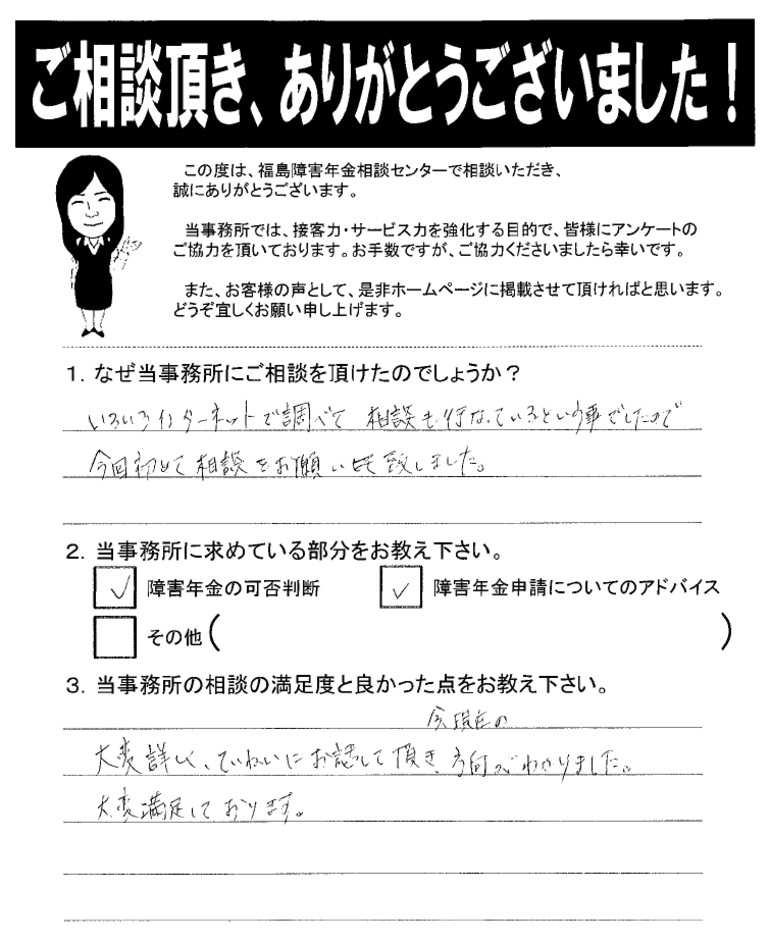 ご相談頂き、ありがとうございました！
この度は、福島障害年金相談センターで相談いただき、
誠にありがとうございます。
当事務所では、接客力・サービス力を強化する目的で、皆様にアンケートの
ご協力を頂いております。お手数ですが、ご協力くださいましたら幸いです。
また、お客様の声として、是非ホームページに掲載させて頂ければと思います。
どうぞ宜しくお願い申し上げます。
1．なぜ当事務所にご相談を頂けたのでしょうか？
いろいろインターネットで調べて 相談も行なっているという事でしたので
今回初めて相談をお願い致しました。
2．当事務所に求めている部分をお教え下さい。
✓ 障害年金の可否判断 ✓ 障害年金申請についてのアドバイス
その他（ ）
3．当事務所の相談の満足度と良かった点をお教え下さい。
今現在の
大変詳しく、ていねいにお話して頂き、方向がわかりました。
大変満足しております。